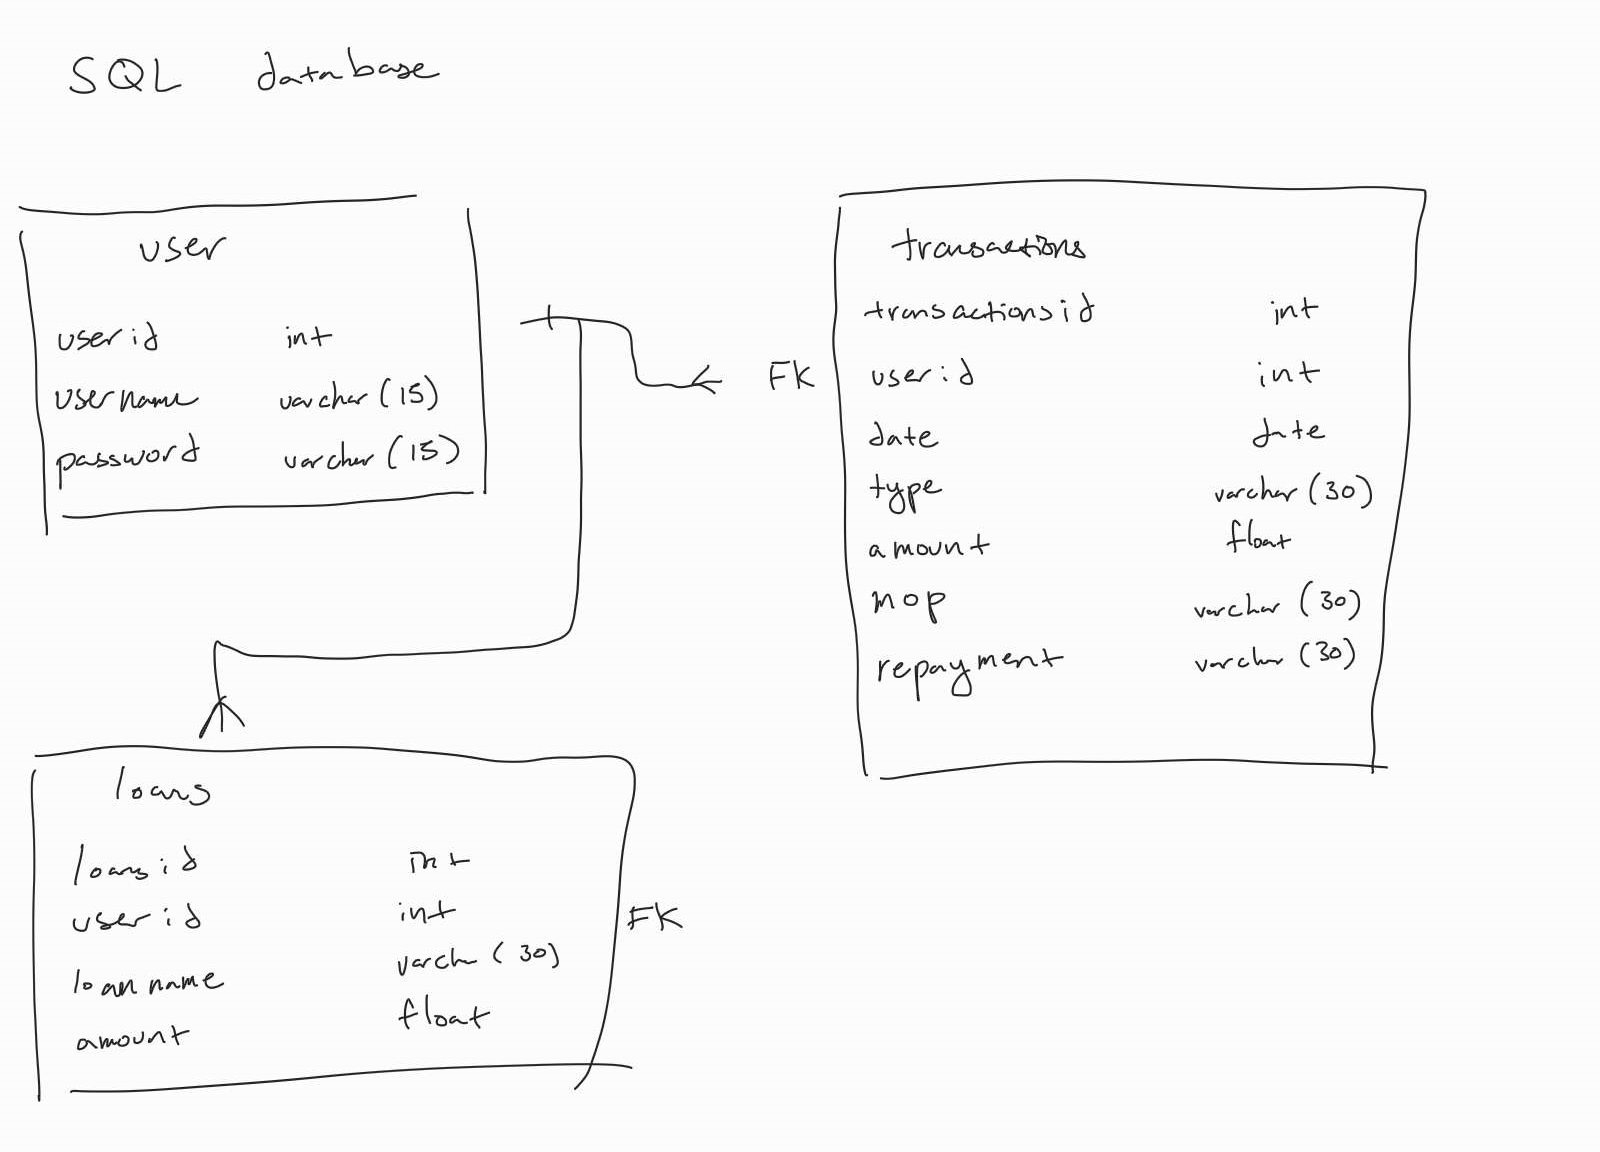 SQL database
user
userid int
username varchar (15)
password varchar (15)
transactions
transactionsid int
FK userid int
date date
type varchar (30)
amount float
mop varchar (30)
repayment varchar (30)
loans
loansid int
userid int FK
loan name varchar (30)
amount float